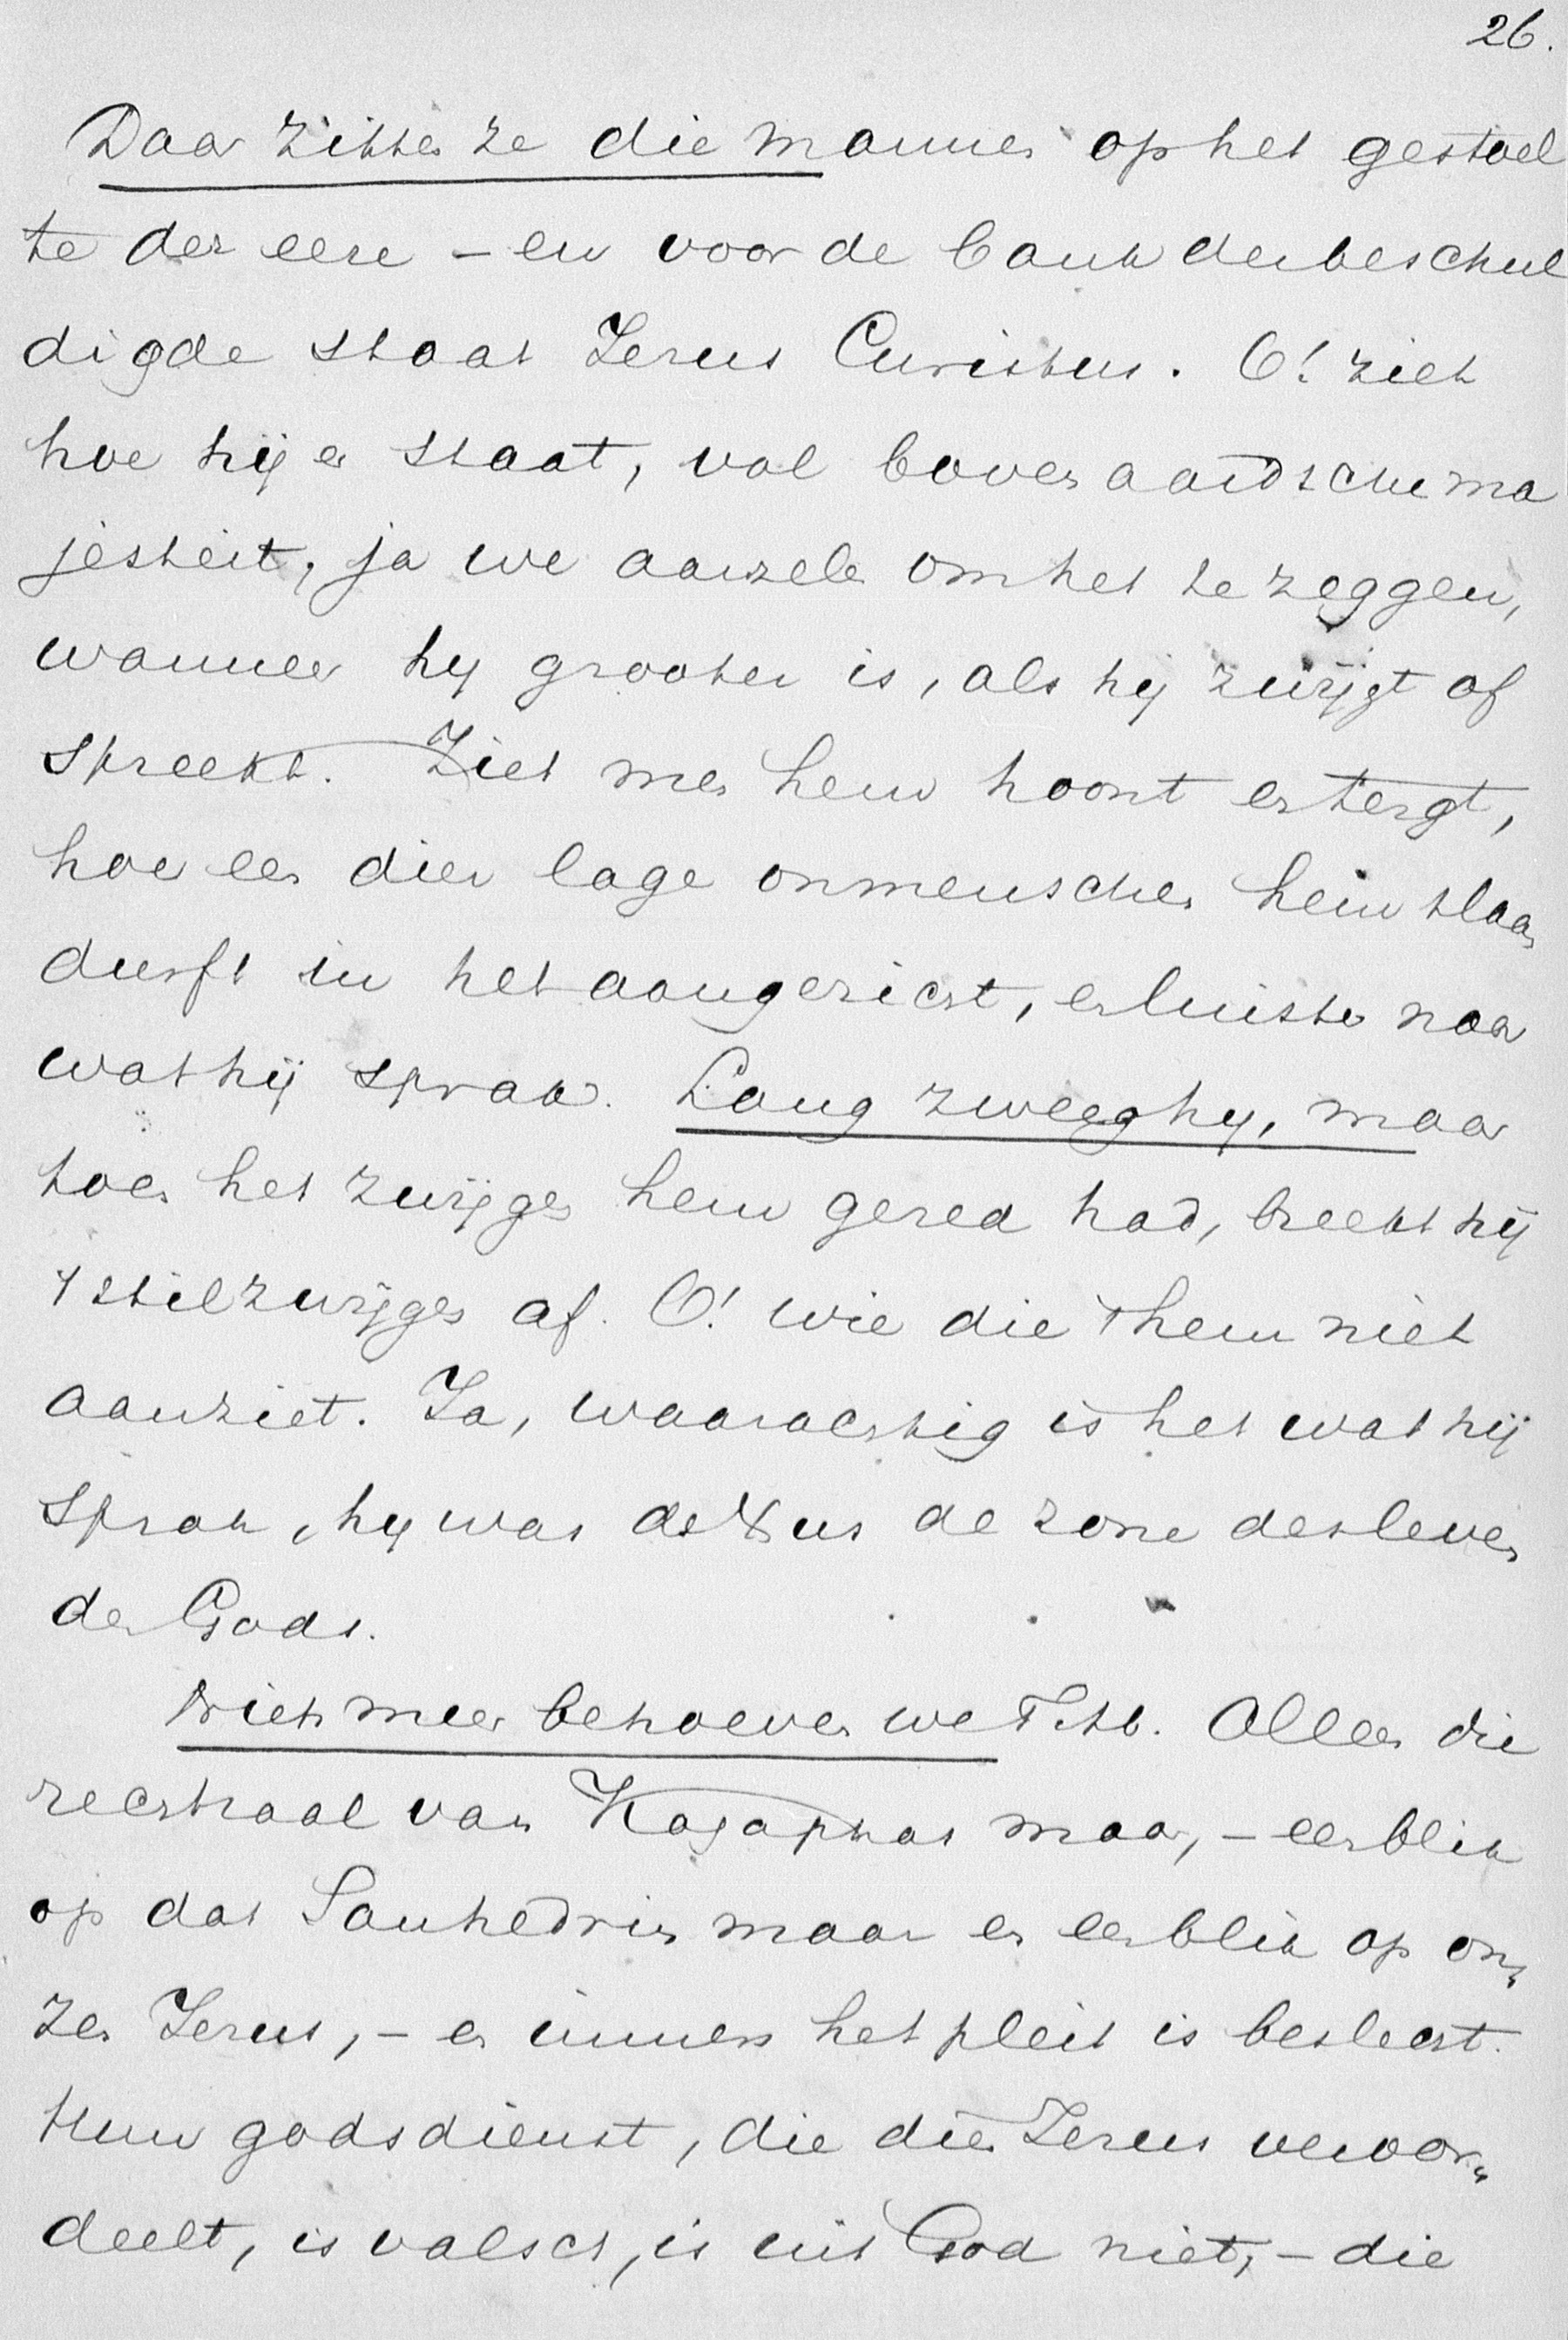 26.
Daar zitten ze die mannen op het gestoel
te der eere – en voor de bank der beschul
digde staat Jezus Christus. O! ziet
hoe hij er staat, vol boven aardsche ma
jesteit, ja we aarzelen om het te zeggen,
wanneer hy grooter is, als hij zwijgt of
spreekt. Ziet men hem hoont en tergt,
hoe een dier lage onmenschen hem slaan
durft in het aangezicht, en luister naar
wat hij sprak. Lang zweeg hy, maar
toen het zwijgen hem gered had, breekt hij
't stilzwijgen af. O! wie die 't hem niet
aanziet. Ja, waarachtig is het wat hij
sprak, hy was de Xus de zone des leven
den Gods.
Niets meer behoeven we T. Alleen die
rechtzaal van Kajaphas maar, – een blik
op dat Sanhedrin maar en een blik op on„
zen Jezus, – en immers het pleit is beslecht.
Hun godsdienst, die dien Jezus veroor„
deelt, is valsch, is uit God niet, – die